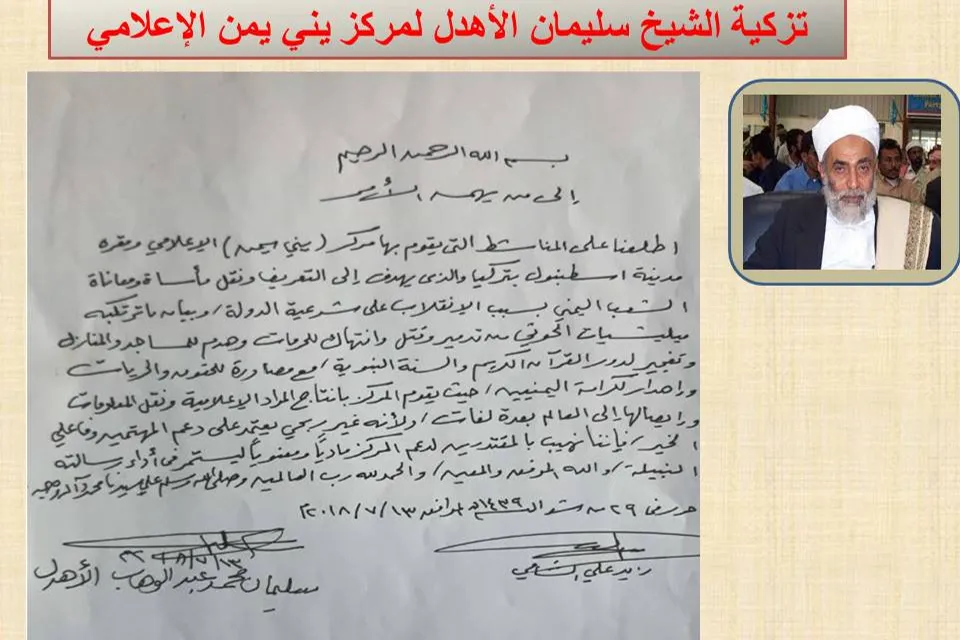 تزكية الشيخ سليمان الأهدل لمركز يني يمن الإعلامي
بسم الله الرحمن الرحيم
إلى من يهمه الأمر
اطلعنا على المناشط التي يقوم بها مركز (يني يمن) الإعلامي ومقره
مدينة اسطنبول بتركيا والذي يهدف إلى التعريف ونقل مأساة ومعاناة
الشعب اليمني بسبب الإنقلاب على شرعية الدولة/ وبيان ما ترتكبه
ميليشيات الحوثي من تدمير وقتل وانتهاك للحرمات وهدم للمساجد والمنازل
وتفجير لدور القرآن الكريم والسنة النبوية/ مع مصادرة للحقوق والحريات
وإهدار لكرامة اليمنيين/ حيث يقوم المركز بانتاج المواد الإعلامية ونقل المعلومات
وإيصالها إلى العالم بعدة لغات/ ولأنه غير ربحي يعتمد على دعم المهتمين وفاعلي
الخير/ فإننا نهيب بالمقتدرين لدعم المركز مادياً ومعنوياً ليستمر في أداء رسالته
النبيلة/ والله الموفق والمعين/ والحمد لله رب العالمين وصلى الله وسلم على سيدنا محمد وآله وصحبه
حرر في ٢٩ من شوال ١٤٣٩هـ الموافق ٢٠١٨/٧/١٣م
سليمان محمد عبد الوهاب الأهدل